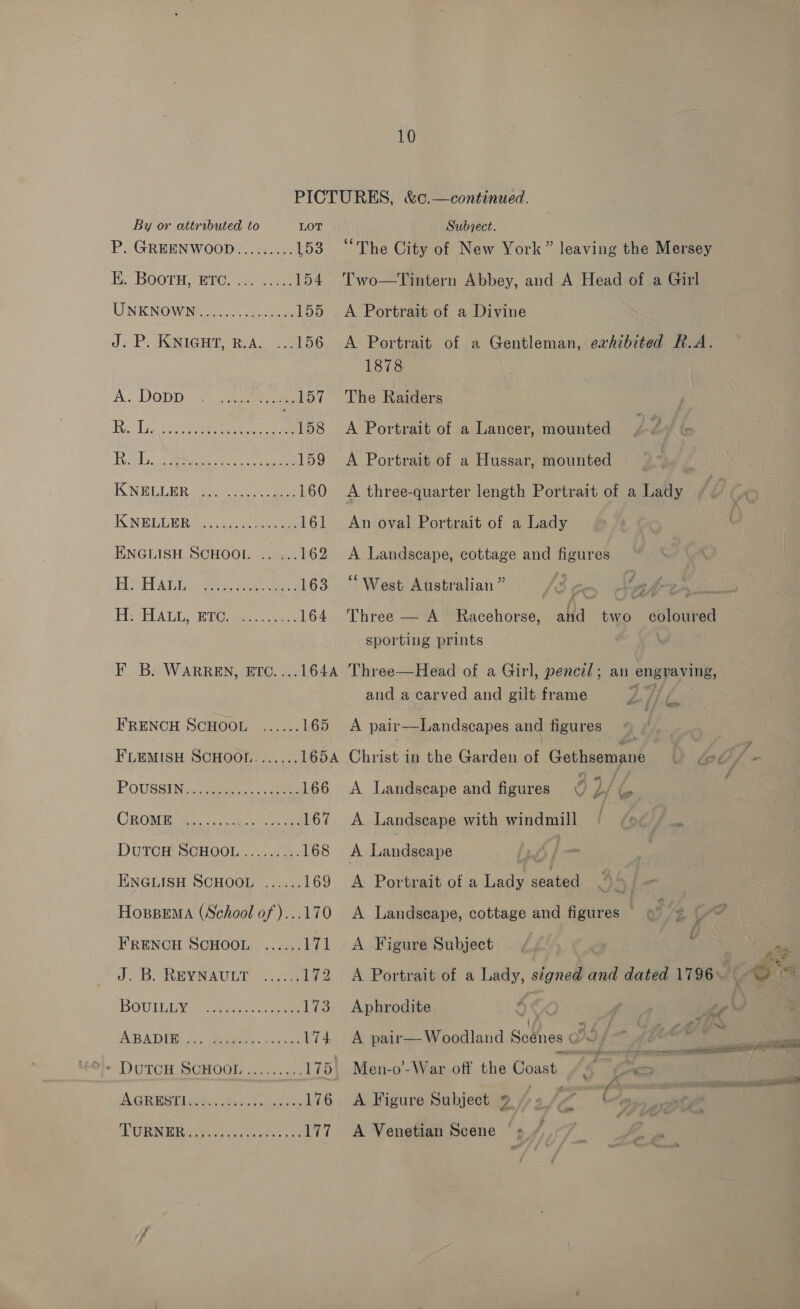 10
PICTURES, &c.—continued.
By or attributed to LOT Subject.
P. GREENWOOD......... 153 “The City of New York” leaving the Mersey
E. BOOTH, ETC. ... ..... 154 Two—Tintern Abbey, and A Head of a Girl
UNKNOWN............... 155 A Portrait of a Divine
J. P. KNIGHT, R.A. ...156 A Portrait of a Gentleman, exhibited R.A.
1878
A. DOPP ............ 157 The Raiders
R. L. ..................... 158 A Portrait of a Lancer, mounted
R. L. ..................... 159 A Portrait of a Hussar, mounted
KNELLER ............... 160 A three-quarter length Portrait of a Lady
KNELLER ............... 161 An oval Portrait of a Lady
ENGLISH SCHOOL .. ...162 A Landscape, cottage and figures
H. HALL ............... 163 “West Australian”
H. HALL, ETC. ......... 164 Three — A Racehorse, and two coloured
sporting prints
F B. WARREN, ETC. ...164A Three—Head of a Girl, pencil; an engraving,
and a carved and gilt frame
FRENCH SCHOOL ...... 165 A pair—Landscapes and figures
FLEMISH SCHOOL....... 165A Christ in the Garden of Gethsemane
POUSSIN.................. 166 A Landscape and figures
CROME .................. 167 A Landscape with windmill
DUTCH SCHOOL......... 168 A Landscape
ENGLISH SCHOOL ...... 169 A Portrait of a Lady seated
HOBBEMA (School of)...170 A Landscape, cottage and figures
FRENCH SCHOOL ...... 171 A Figure Subject
J. B. REYNAULT ...... 172 A Portrait of a Lady, signed and dated 1796
BOUILLY ............... 173 Aphrodite
ABADIE .................. 174 A pair—Woodland Scenes
DUTCH SCHOOL......... 175 Men-o’-War off the Coast
AGRESTI.................. 176 A Figure Subject
TURNER.................. 177 A Venetian Scene